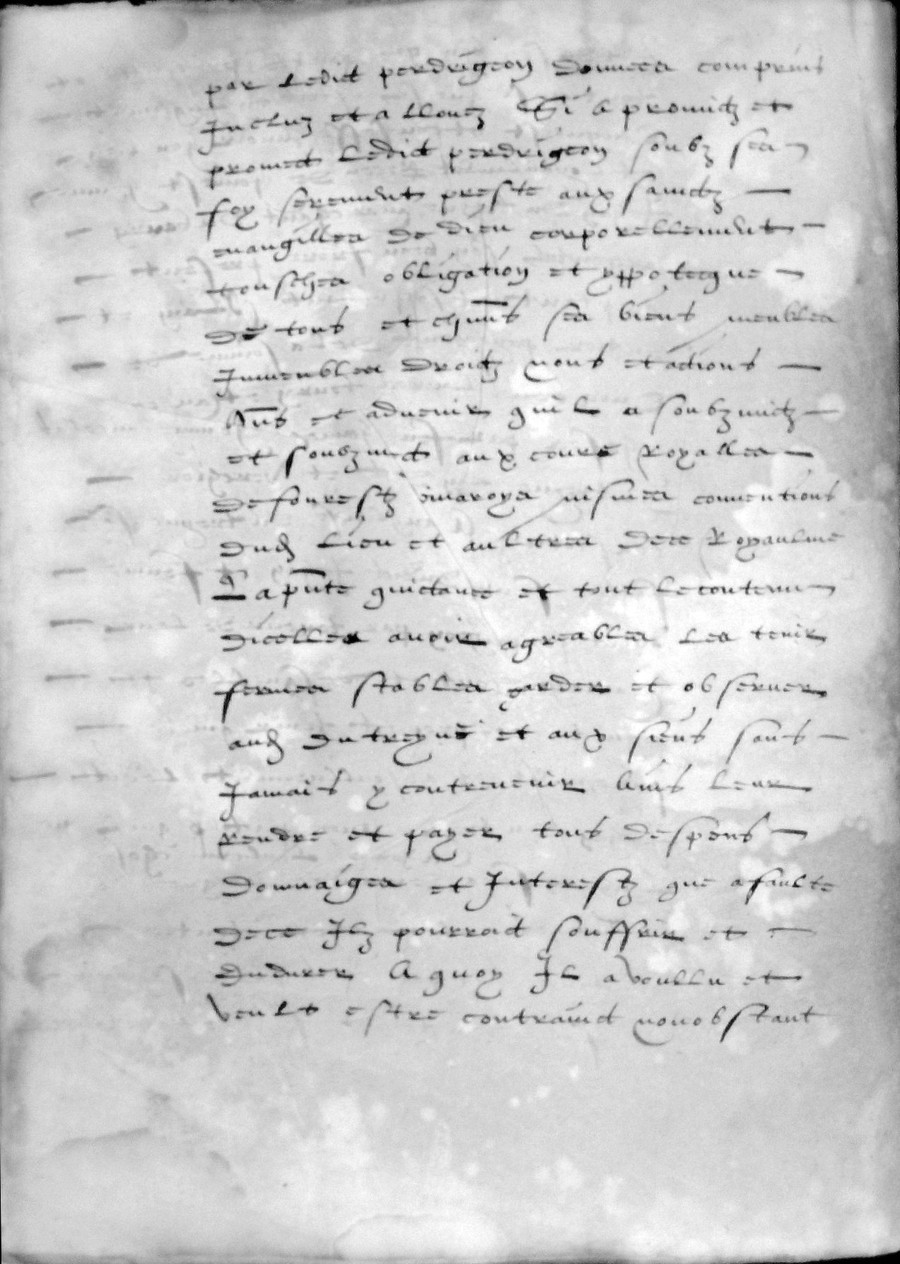 par ledict perdrigeon donnees comprins
Incluz et allouez Si a promis et
promect ledict perdrigeon soubz sa
foy serement preste aux sainctz
evangilles de dieu corporellement
touschez obligation et yppotecque
de tous et chūns ses biens meubles
Immeubles droictz noms et actions
et advenir quil a soubzmis
et soubzmect aux cours Royalles
de fourestz conventions
dud lieu et aultres de ce Royaulme
La pñte quictance et tout le contenu
dicelles avoir agreables les tenir
fermes stables garder et observer
aud dutreyne et aux siens sans
Jamais y contrevenir Ains leur
rendre et payer tous despens
dommaiges et Interestz que a faulte
de ce Ilz pourroict souffrir et
endurer A quoy Il a voullu et
veult estre contrainct nonobstant